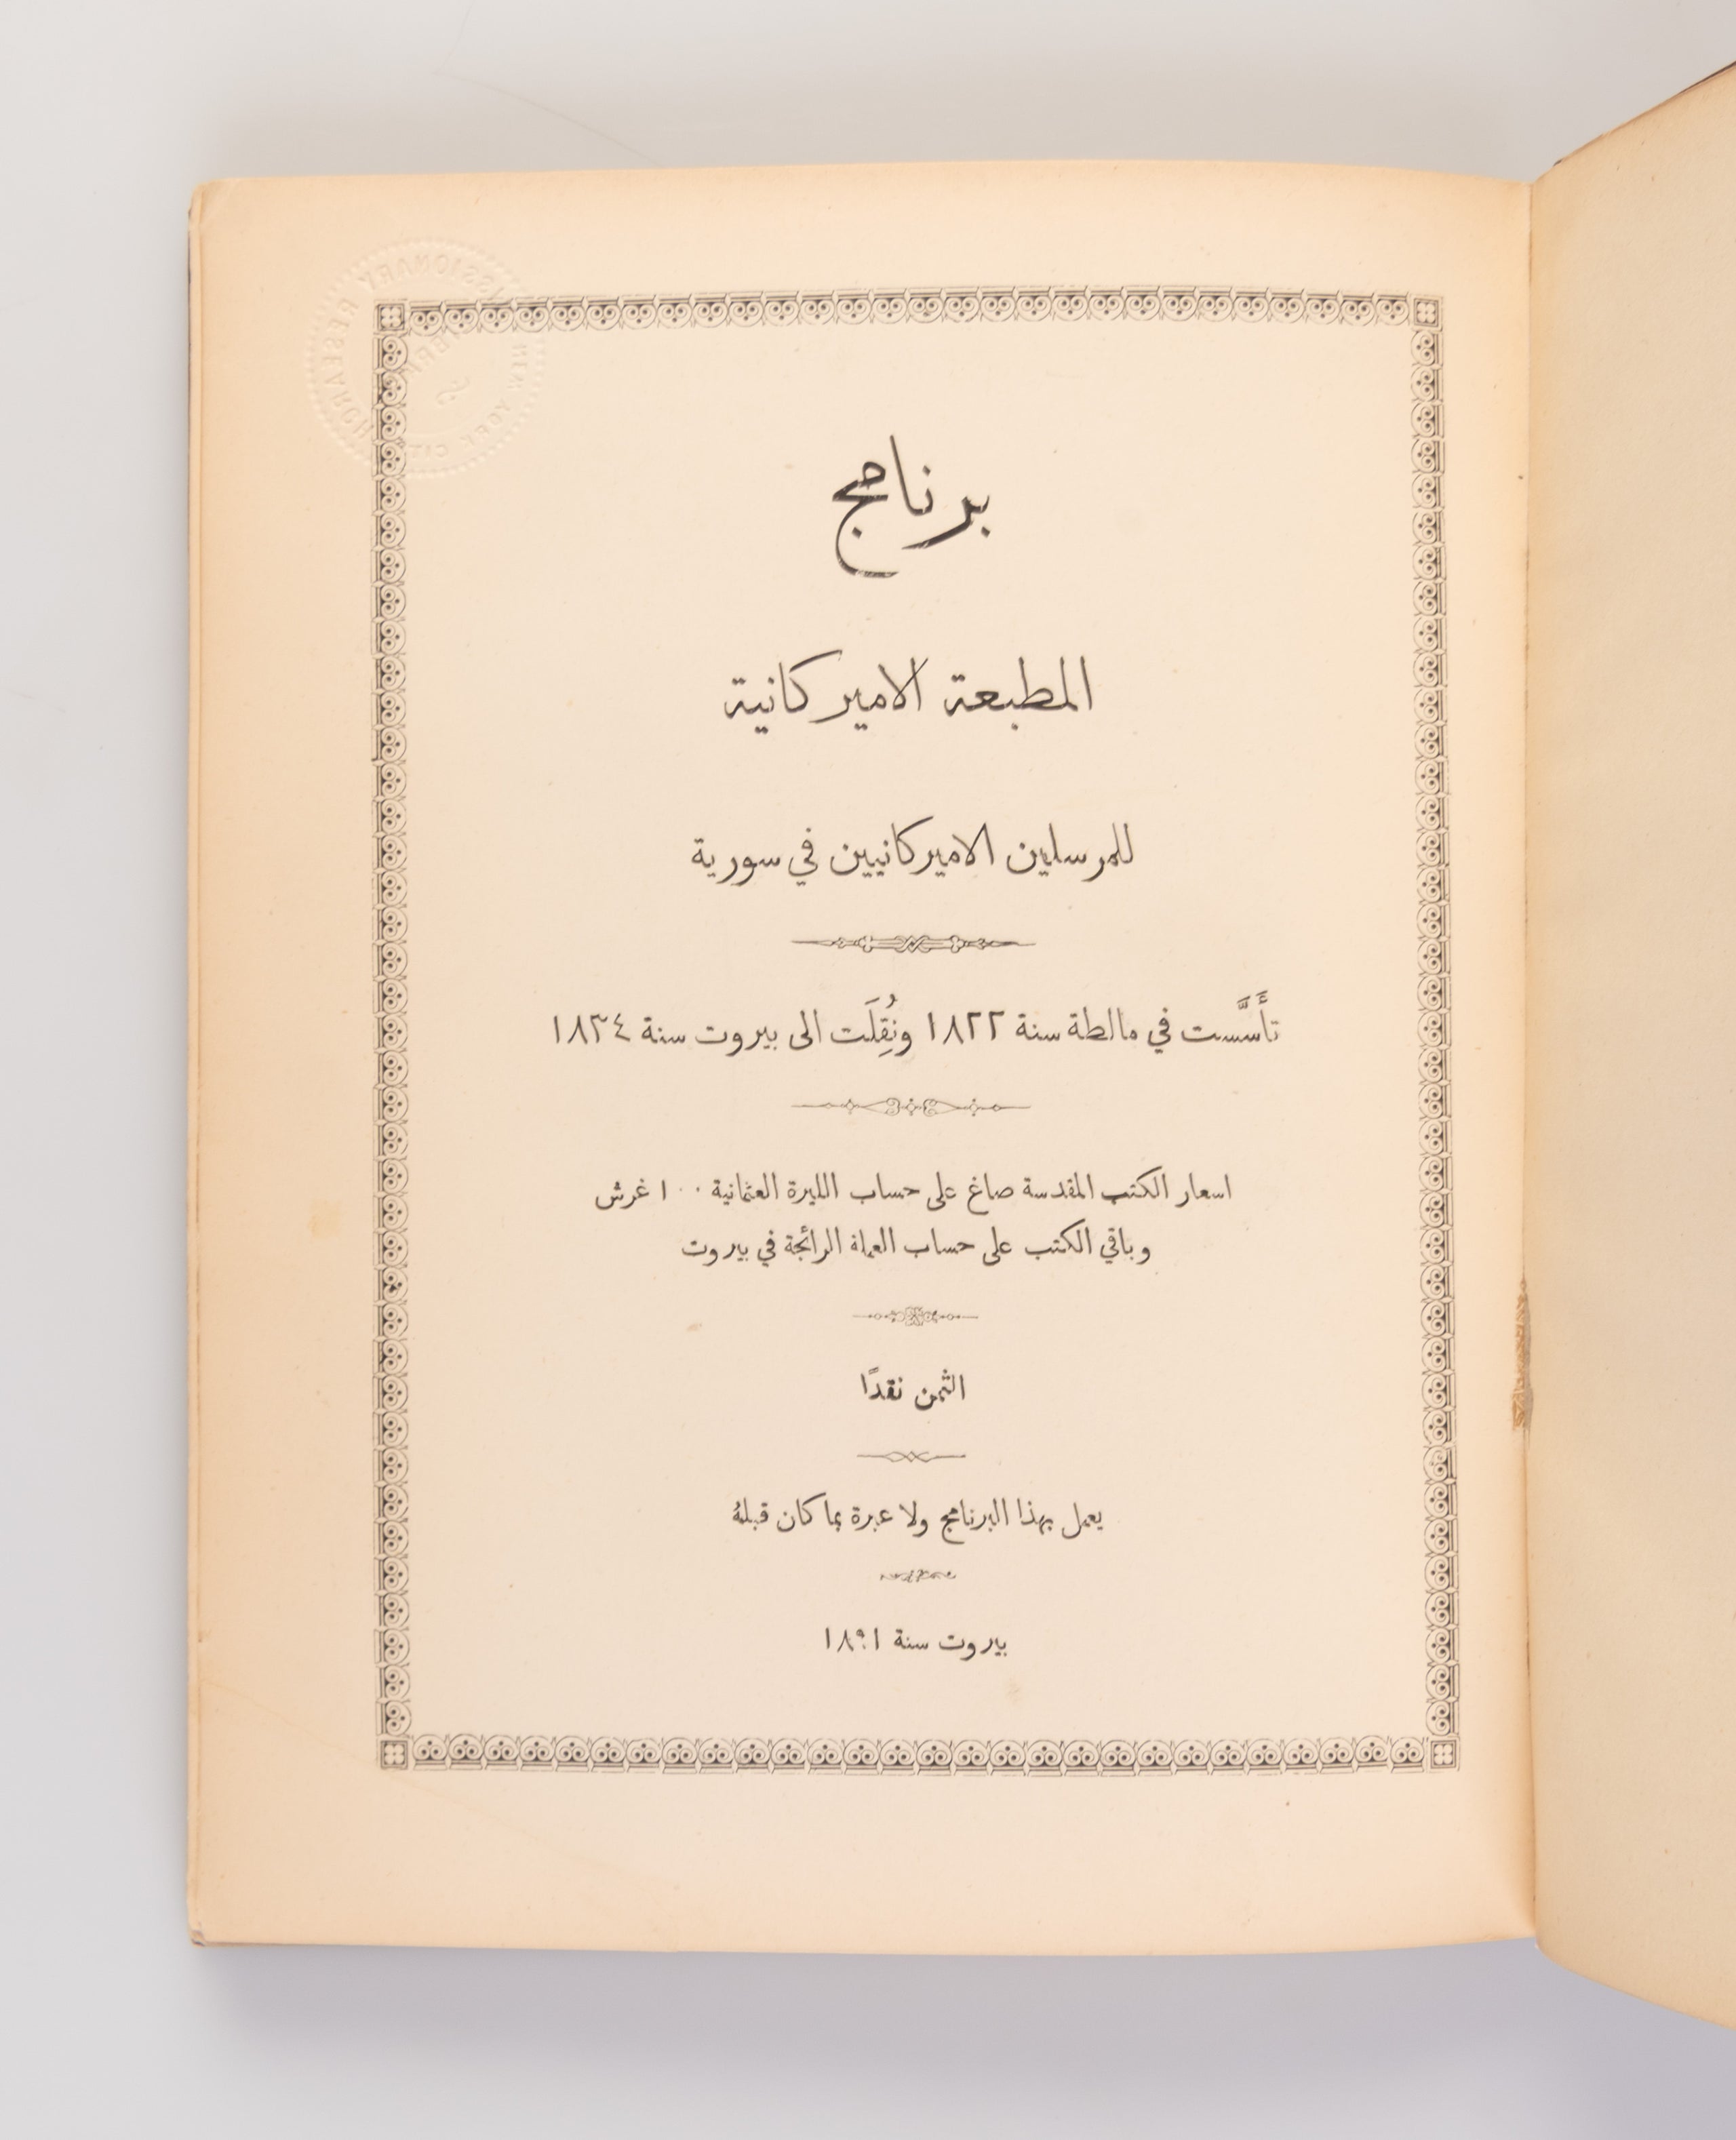 برنامج
المطبعة الاميركانية
للمرسلين الاميركانيين في سورية
تأَسَّست في مالطة سنة ١٨٢٢ ونُقِلَت الى بيروت سنة ١٨٣٤
اسعار الكتب المقدسة صاغ على حساب الليرة العثمانية ١٠٠ غرش
وباقي الكتب على حساب العملة الرائجة في بيروت
الثمن نقدًا
يعمل بهذا البرنامج ولا عبرة بما كان قبلهُ
بيروت سنة ١٨٩١
MISSIONARY RESEARCH
LIBRARY
NEW YORK CITY